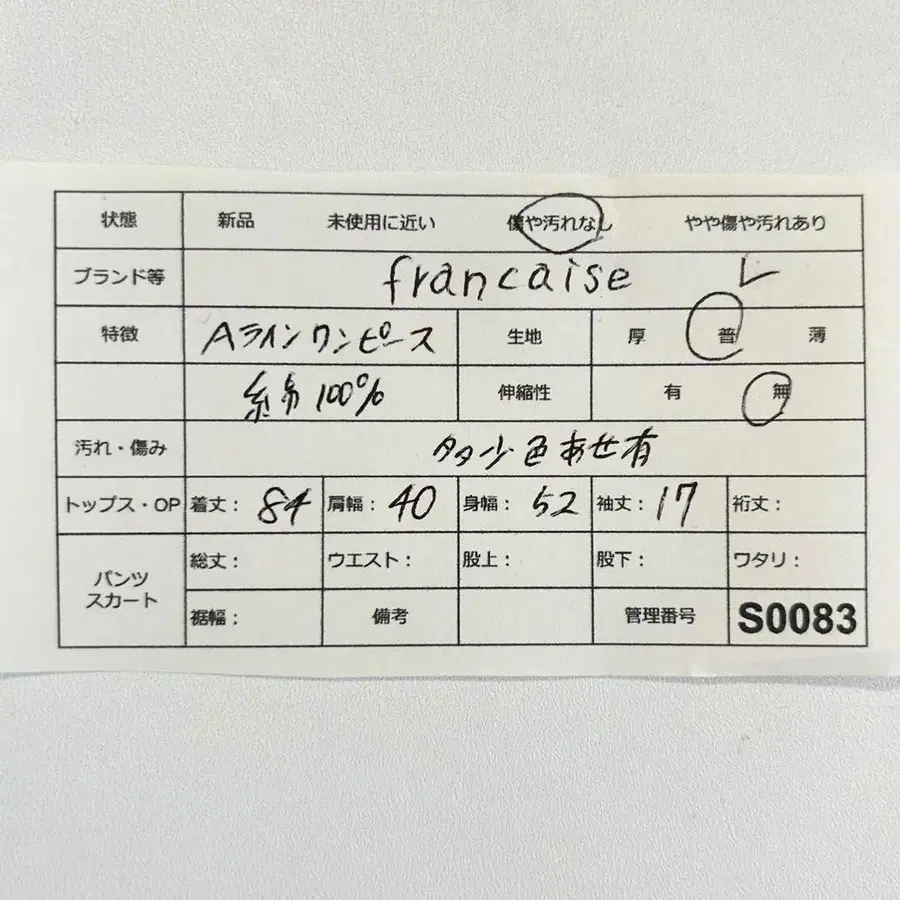 状態 新品 未使用に近い 傷や汚れなし やや傷や汚れあり
ブランド等 francaise
特徴 Aラインワンピース 生地 厚 普 薄
綿100% 伸縮性 有 無
汚れ・傷み 多少色あせ有
トップス・OP 着丈: 84 肩幅: 40 身幅: 52 袖丈: 17 裄丈:
パンツ スカート 総丈: ウエスト: 股上: 股下: ワタリ:
裾幅: 備考 管理番号 S0083